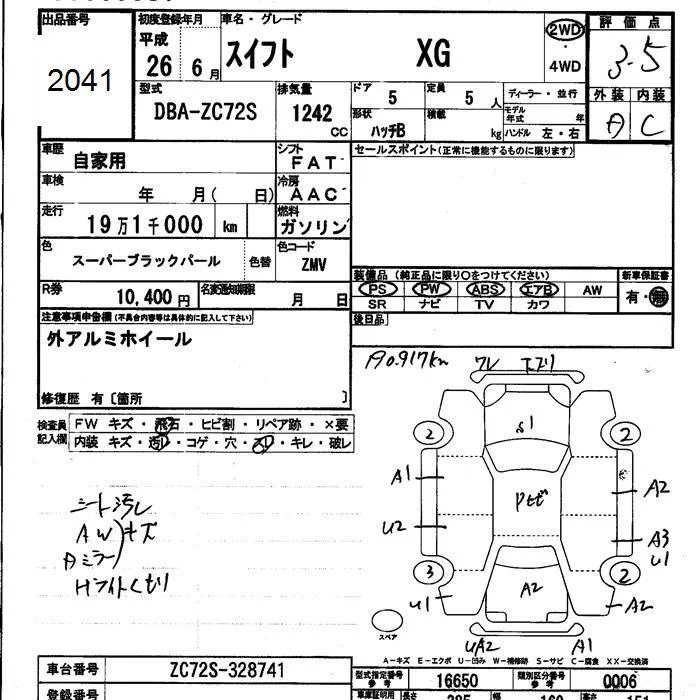 出品番号
2041
初度登録年月
平成
26 6月
車名・グレード
スイフト XG
2WD
・
4WD
評価点
3.5
外装 内装
A C
型式
DBA-ZC72S
排気量
1242
CC
ドア 5
定員 5 人
ディーラー・並行
形状 ハッチB
積載 kg
モデル年式 年
ハンドル 左・右
車歴
自家用
シフト
FAT
セールスポイント(正常に機能するものに限ります)
車検
年 月( 日)
冷房
AAC
走行
19万1千000 km
燃料
ガソリン
色
スーパーブラックパール
色替
色コード
ZMV
装備品 (純正品に限り○をつけてください)
新車保証書
PS PW ABS エアB AW
有・無
SR ナビ TV カワ
R券
10,400円
名変通知期限
月 日
後日品
注意事項申告欄(不具合内容等は具体的に記入して下さい)
外アルミホイール
修復歴 有〔箇所 〕
検査員
記入欄
FW キズ・飛石・ヒビ割・リペア跡・×要
内装 キズ・汚・コゲ・穴・スレ・キレ・破レ
190.917km
ワレ
S1
2 2
A1
Pセビ
A2
U2
A3
U1
3 2
U1
A2
A2
UA2
A1
シート汚レ
AW)キズ
Aミラー
Hライトくもり
スペア
A-キズ E-エクボ U-凹み W-補修跡 S-サビ C-腐食 XX-交換済
車台番号
ZC72S-328741
型式指定番号
16650
類別区分番号
0006
登録番号
車庫証明用
長さ 385
幅 169
高さ 151